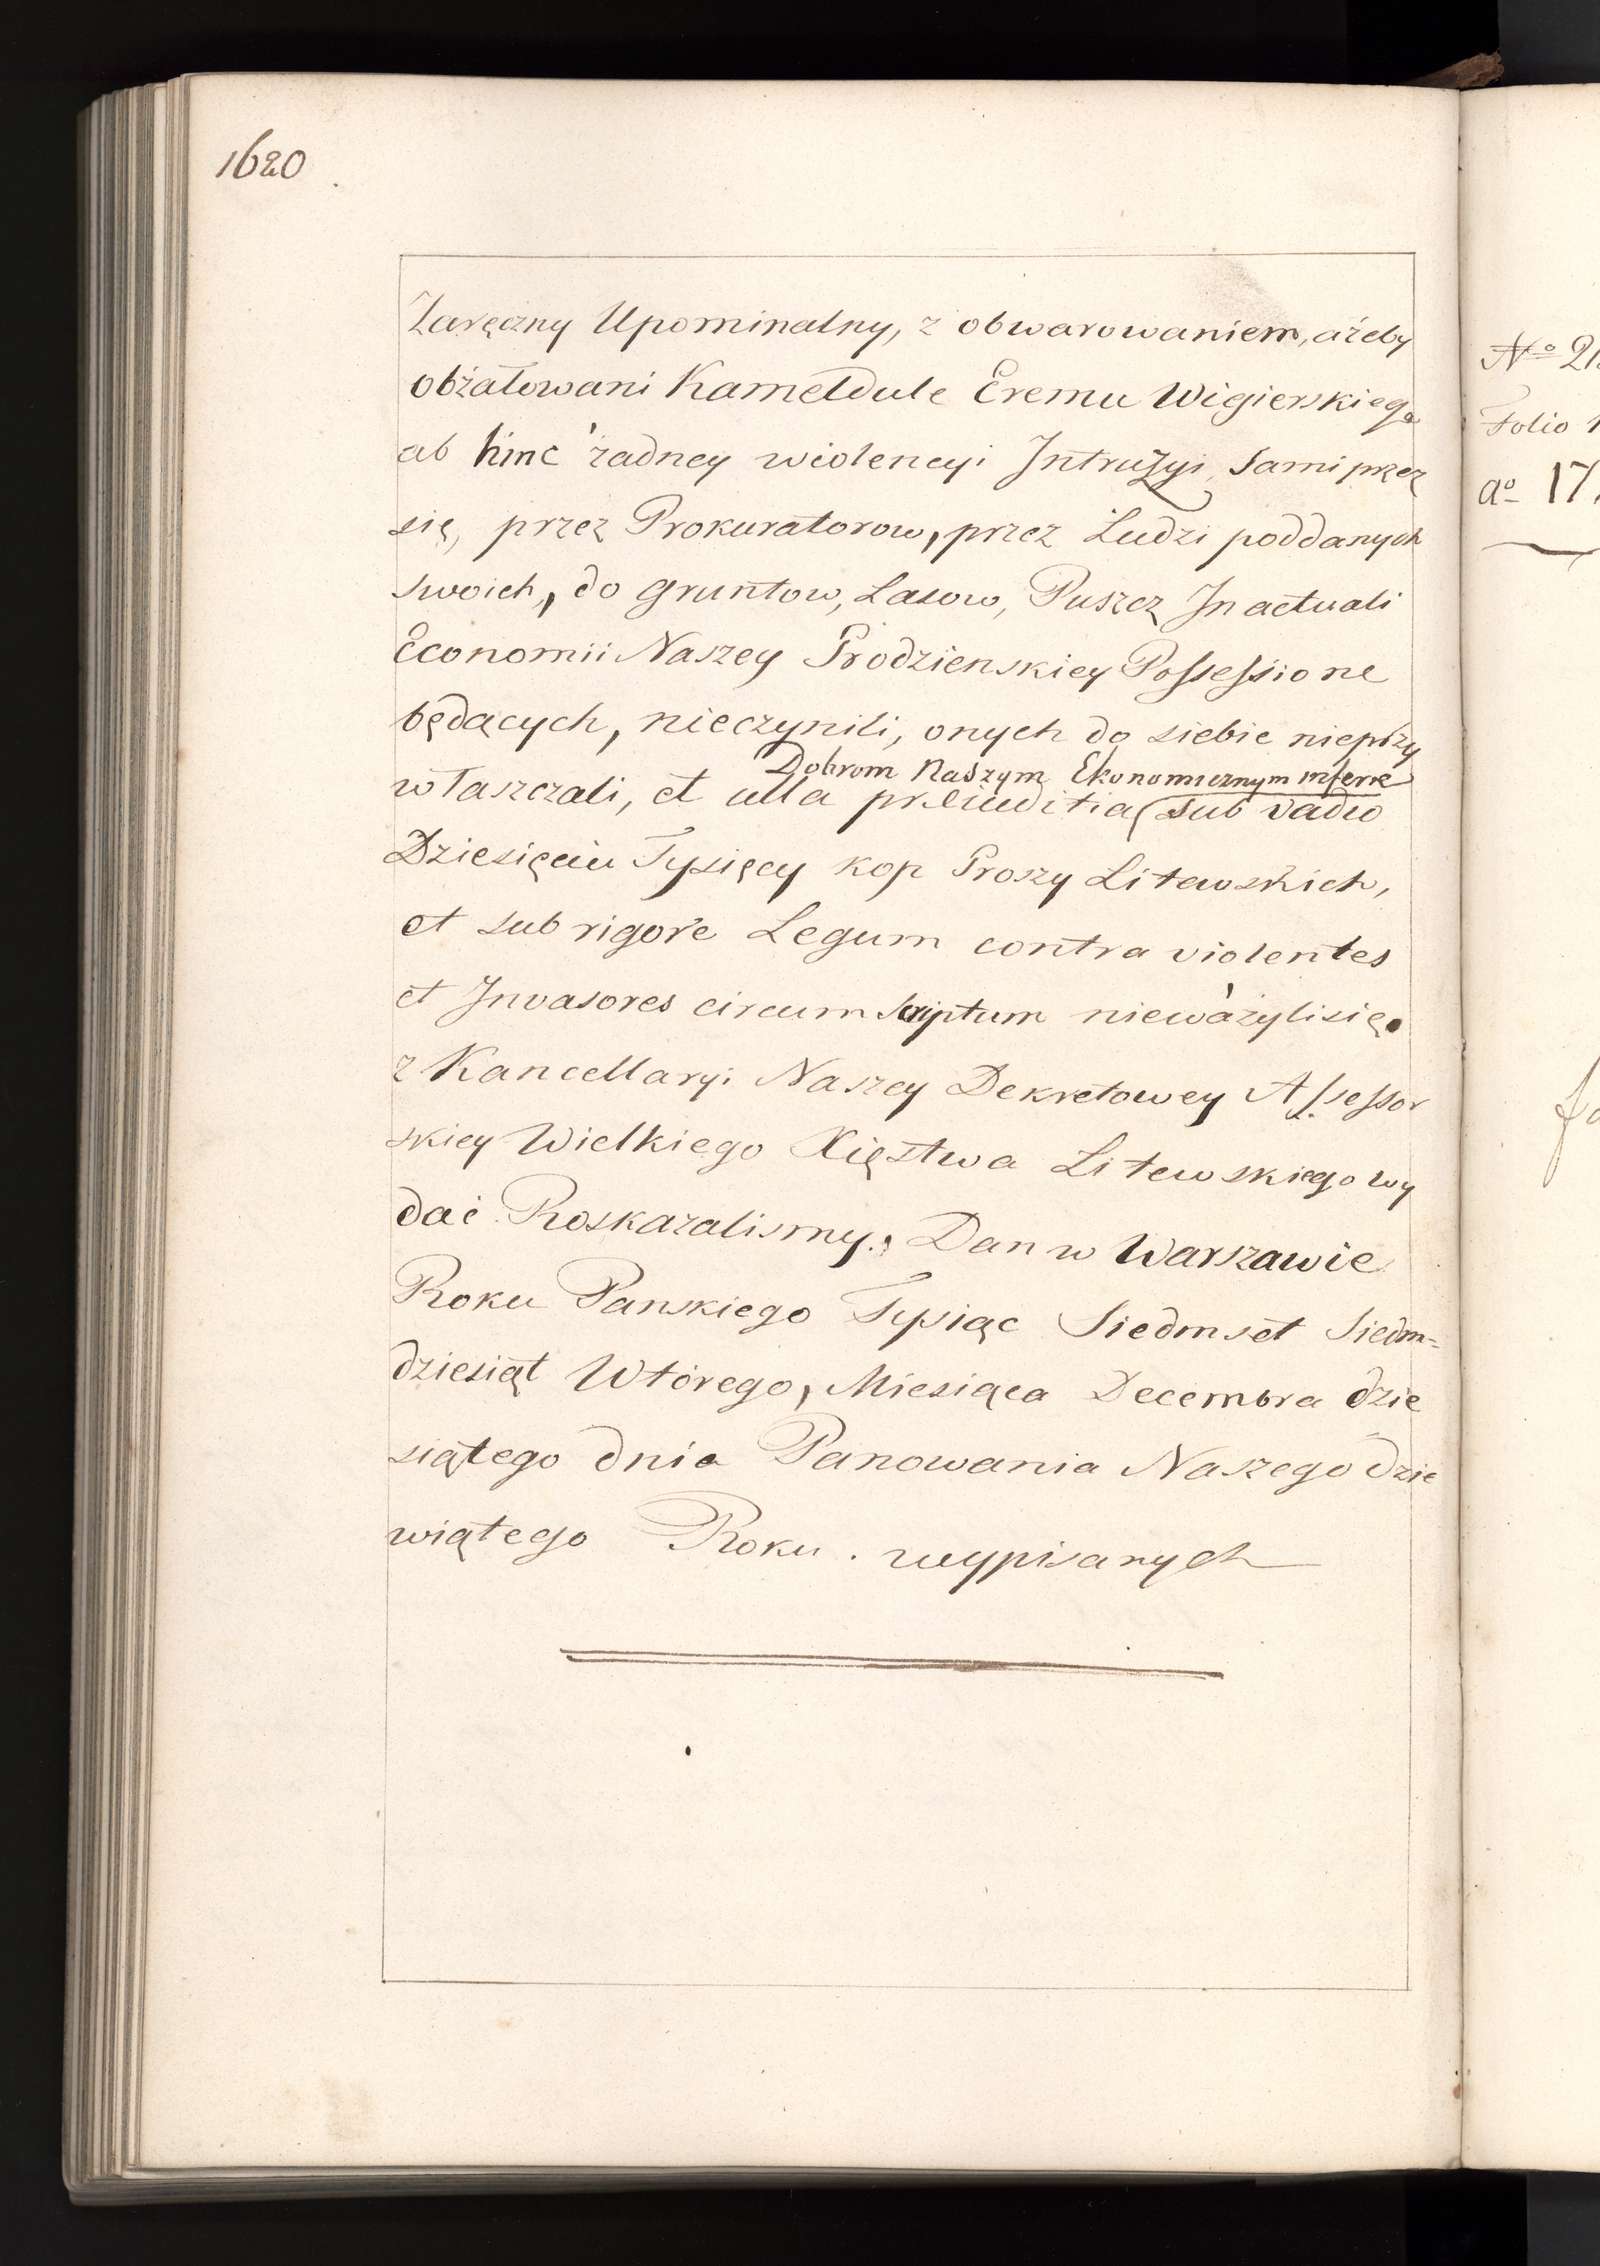 1620
Zaręczny Upominalny, z obwarowaniem, ażeby
obżałowani Kameldule Eremu Wigierskiego
ab hinc żadney wiolencyi Intruzyi, Sami przez
się, przez Prokuratorow, przez Ludzi poddanych
swoich, do gruntow, Lasow, Puszcz Jn actuali
Economii Naszey Grodzienskiey Possessione
będących, nieczynili, onych do siebie nieprzy
Dobrom Naszym Ekonomicznym inferre
właszczali, et ulla preiuditia sub vadio
Dziesięciu Tysięcy kop Groszy Litewskich,
et sub rigore Legum contra violentes
et Jnvasores circum scriptum nieważylisię.
z Kancellaryi Naszey Dekretowey Assessor
skiey Wielkiego Xięstwa Litewskiego wy
dać Roskazalismy. Dan w Warszawie
Roku Panskiego Tysiąc Siedmset Siedm-
dziesiąt Wtórego, Miesiąca Decembra dzie
siątego dnia Panowania Naszego dzie
wiątego Roku. wypisanych
No 21
Folio 1
ao 17